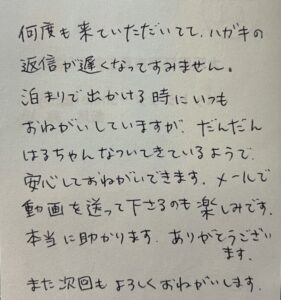 何度も来ていただいてて、ハガキの
返信が遅くなってすみません。
泊まりで出かける時にいつも
おねがいしていますが、だんだん
はるちゃんなついてきているようで、
安心しておねがいできます。メールで
動画を送って下さるのも楽しみです。
本当に助かります。ありがとうござい
ます。
また次回もよろしくおねがいします。